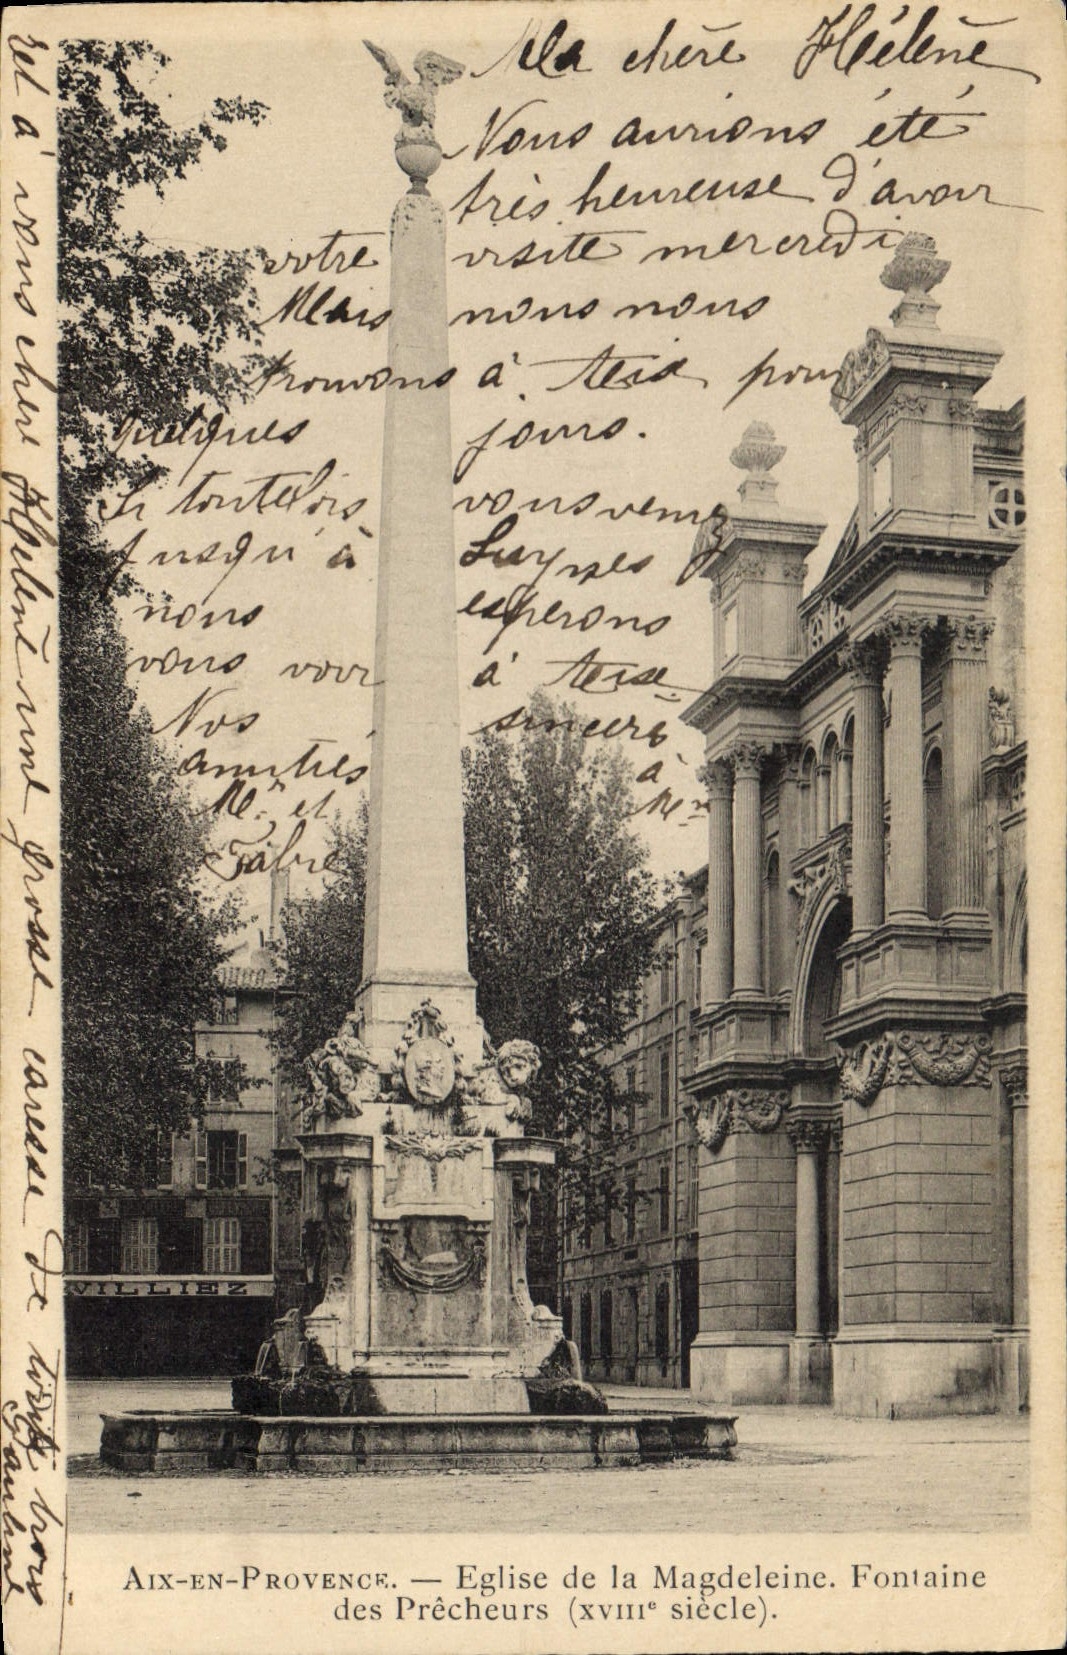 Ma chère Hélène
Nous aurions été
très heureuse d'avoir
votre visite mercredi
Mais nous nous
trouvons à pour
quelques jours.
Si toutefois vous venez
jusqu'à Luynes
nous esperons
vous voir à
Nos sincères
amitiés à
Mr et Mme
Fabre
et à vous chère Hélène une grosse caresse de trois
Pauline
VILLIEZ
AIX-EN-PROVENCE. — Eglise de la Magdeleine. Fontaine
des Prêcheurs (XVIIIe siècle).